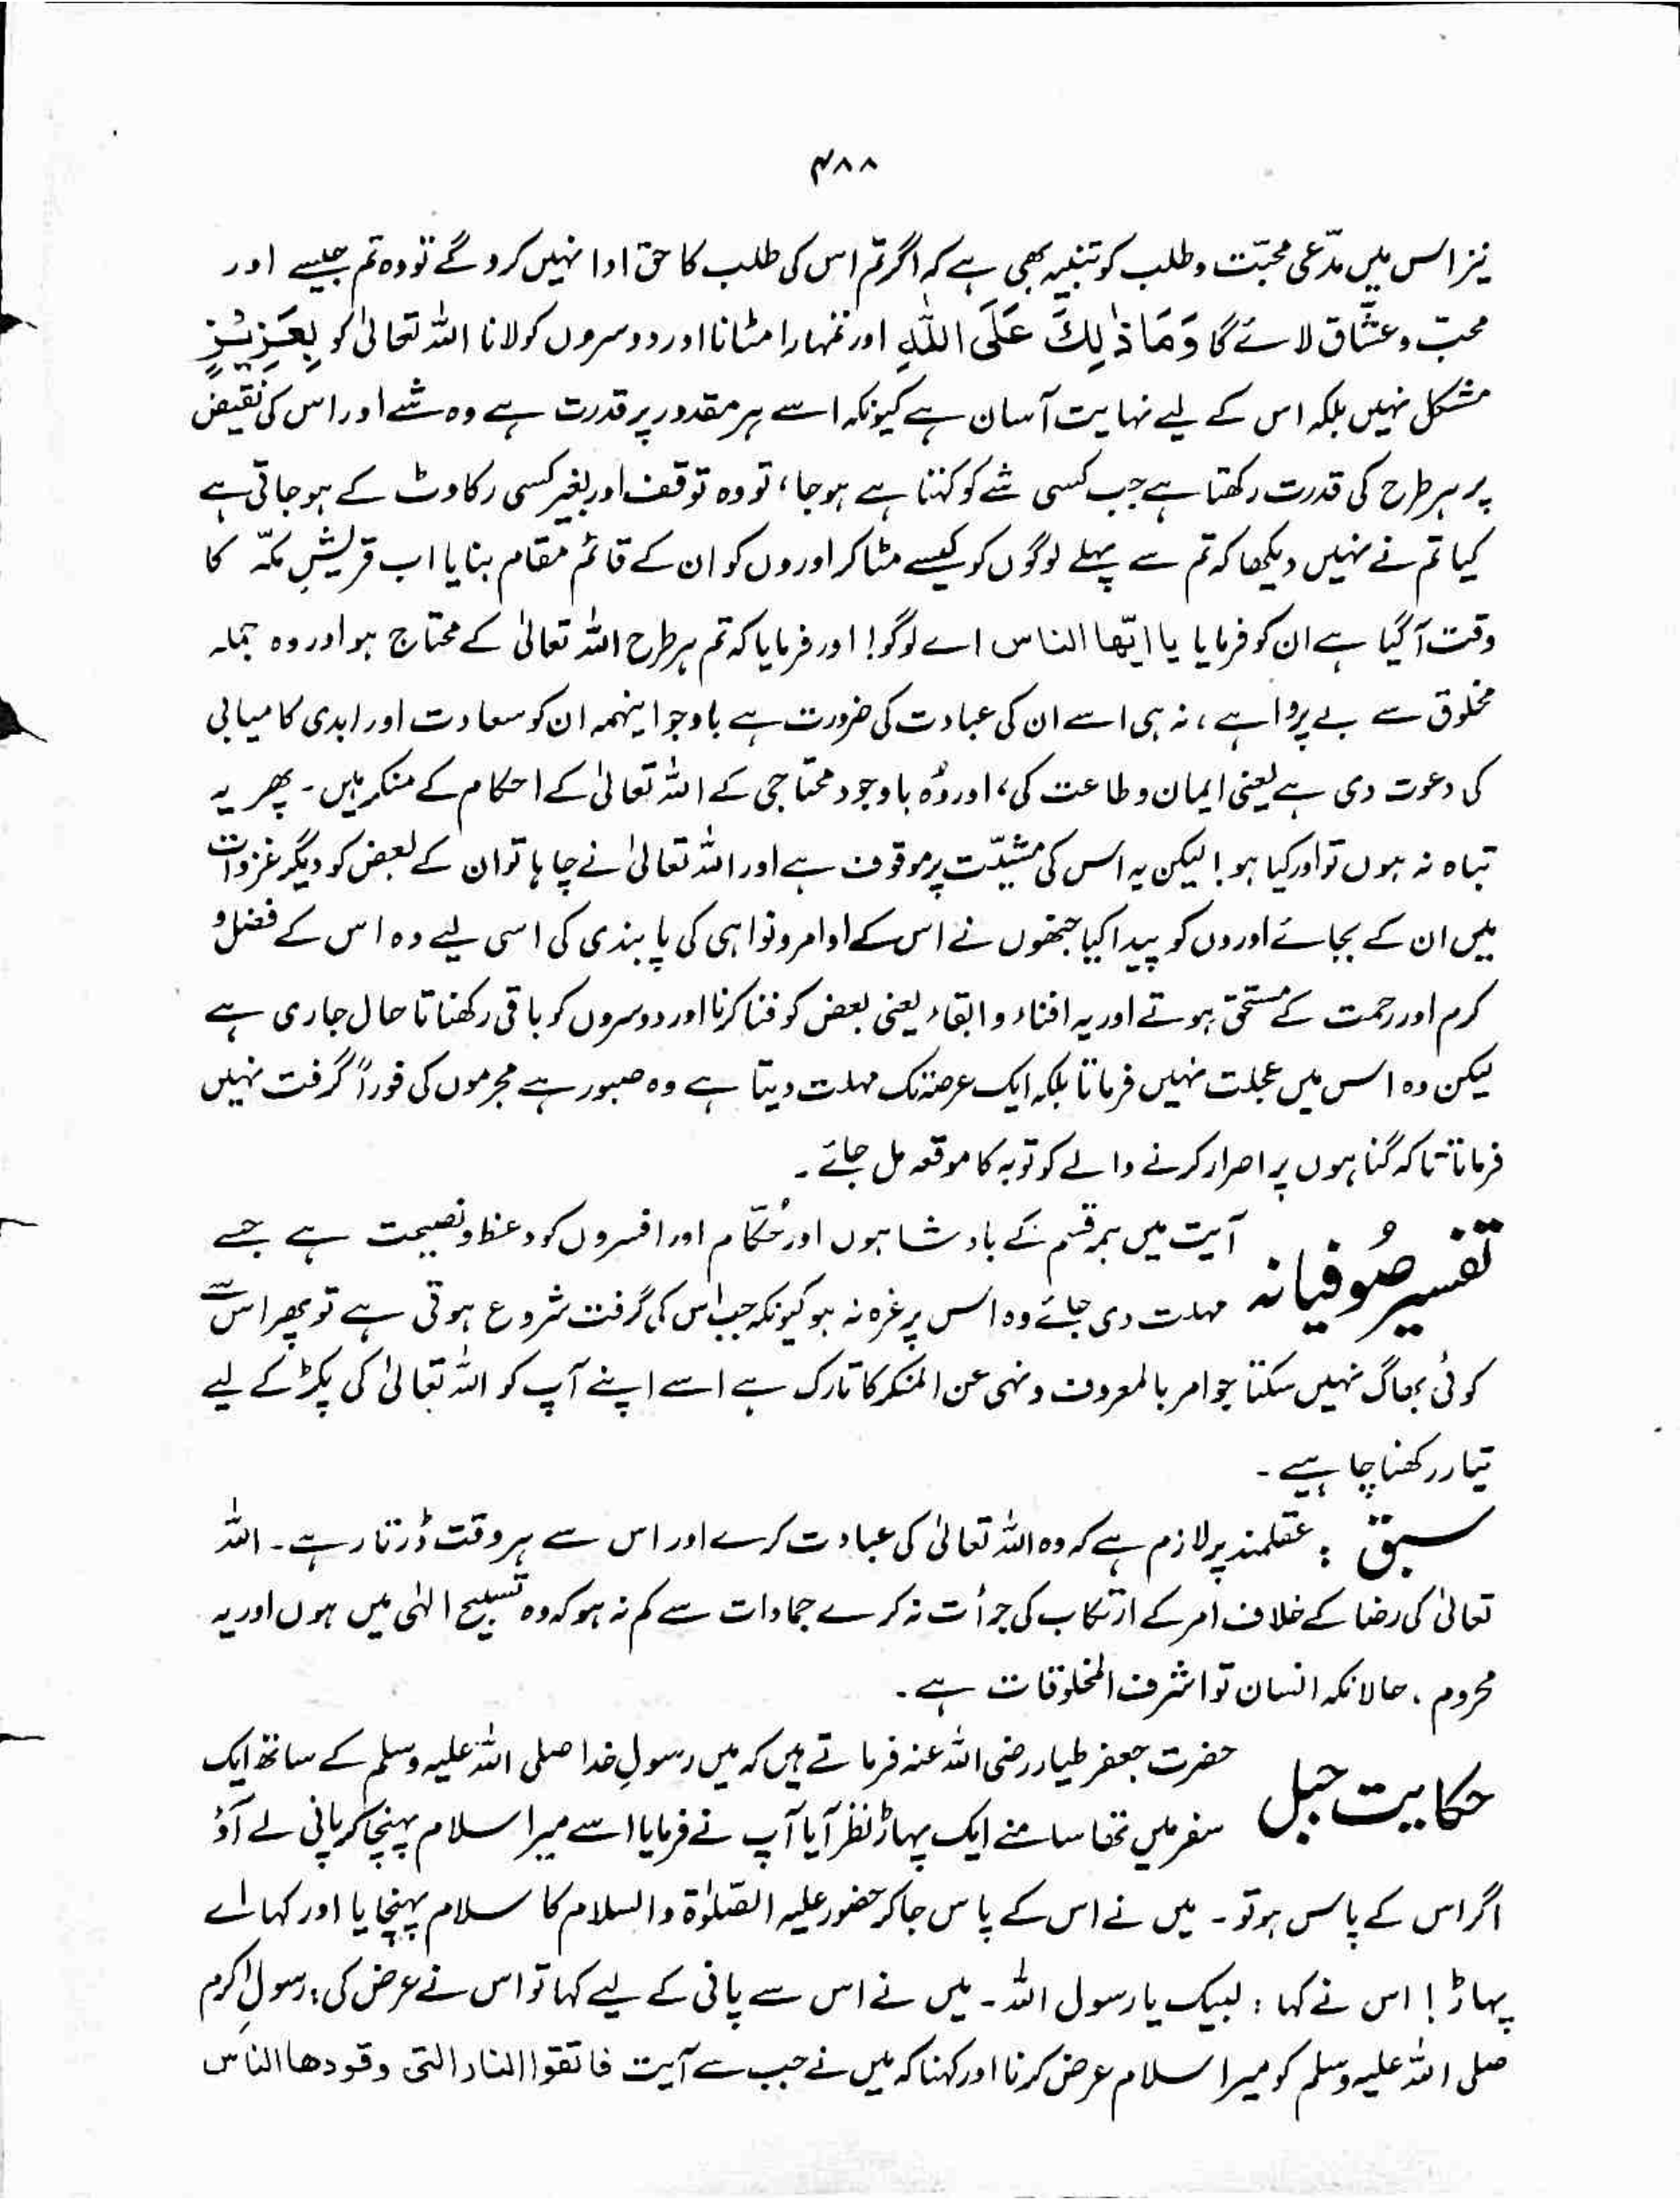 ۴۸۸
نیز اس میں مدّعی محبّت و طلب کو تنبیہ بھی ہے کہ اگر تم اس کی طلب کا حق ادا نہیں کرو گے تو وہ تم جیسے اور
محبّ و عشّاق لائے گا وَمَا ذٰلِكَ عَلَى اللّٰهِ اور تمہارا مٹانا اور دوسروں کو لانا اللہ تعالیٰ کو بِعَزِيْزٍ
مشکل نہیں بلکہ اس کے لیے نہایت آسان ہے کیونکہ اسے ہر مقدور پر قدرت ہے وہ شے اور اس کی نقیض
پر ہر طرح کی قدرت رکھتا ہے جب کسی شے کو کہتا ہے ہو جا، تو وہ توقف اور بغیر کسی رکاوٹ کے ہو جاتی ہے
کیا تم نے نہیں دیکھا کہ تم سے پہلے لوگوں کو کیسے مٹا کر اوروں کو ان کے قائم مقام بنایا اب قریشِ مکّہ کا
وقت آ گیا ہے ان کو فرمایا یا ایّھا الناس اے لوگو! اور فرمایا کہ تم ہر طرح اللہ تعالیٰ کے محتاج ہو اور وہ جملہ
مخلوق سے بے پروا ہے، نہ ہی اسے ان کی عبادت کی ضرورت ہے باوجو اینہمہ ان کو سعادت اور ابدی کامیابی
کی دعوت دی ہے یعنی ایمان و طاعت کی، اور وُہ باوجود محتاجی کے اللہ تعالیٰ کے احکام کے منکر ہیں۔ پھر یہ
تباہ نہ ہوں تو اور کیا ہو! لیکن یہ اس کی مشیّت پر موقوف ہے اور اللہ تعالیٰ نے چاہا تو ان کے بعض کو دیگر غزوات
میں ان کے بجائے اوروں کو پیدا کیا جنھوں نے اس کے اوامر و نواہی کی پابندی کی اسی لیے وہ اس کے فضل و
کرم اور رحمت کے مستحق ہوتے اور یہ افناء و ابقاء یعنی بعض کو فنا کرنا اور دوسروں کو باقی رکھنا تا حال جاری ہے
لیکن وہ اس میں عجلت نہیں فرماتا بلکہ ایک عرصہ تک مہلت دیتا ہے وہ صبور ہے مجرموں کی فوراً گرفت نہیں
فرماتا تاکہ گناہوں پر اصرار کرنے والے کو توبہ کا موقعہ مل جائے۔
تفسیر صُوفیانہ آیت میں ہر قسم کے بادشاہوں اور حُکّام اور افسروں کو وعظ و نصیحت ہے جسے
مہلت دی جائے وہ اس پر غرہ نہ ہو کیونکہ جب اس کی گرفت شروع ہوتی ہے تو پھر اس سے
کوئی بھاگ نہیں سکتا جو امر بالمعروف و نہی عن المنکر کا تارک ہے اسے اپنے آپ کو اللہ تعالیٰ کی پکڑ کے لیے
تیار رکھنا چاہیے۔
سبق : عقلمند پر لازم ہے کہ وہ اللہ تعالیٰ کی عبادت کرے اور اس سے ہر وقت ڈرتا رہے۔ اللہ
تعالیٰ کی رضا کے خلاف امر کے ارتکاب کی جرأت نہ کرے جمادات سے کم نہ ہو کہ وہ تسبیح الٰہی میں ہوں اور یہ
محروم، حالانکہ انسان تو اشرف المخلوقات ہے۔
حکایت جبل حضرت جعفر طیار رضی اللہ عنہ فرماتے ہیں کہ میں رسولِ خدا صلی اللہ علیہ وسلم کے ساتھ ایک
سفر میں تھا سامنے ایک پہاڑ نظر آیا آپ نے فرمایا اسے میرا سلام پہنچا کر پانی لے آؤ
اگر اس کے پاس ہو تو۔ میں نے اس کے پاس جا کر حضور علیہ الصّلوٰۃ والسلام کا سلام پہنچایا اور کہا اے
پہاڑ! اس نے کہا : لبیک یا رسول اللہ۔ میں نے اس سے پانی کے لیے کہا تو اس نے عرض کی : رسولِ اکرم
صلی اللہ علیہ وسلم کو میرا سلام عرض کرنا اور کہنا کہ میں نے جب سے آیت فاتقوا النار التی وقودھا الناس